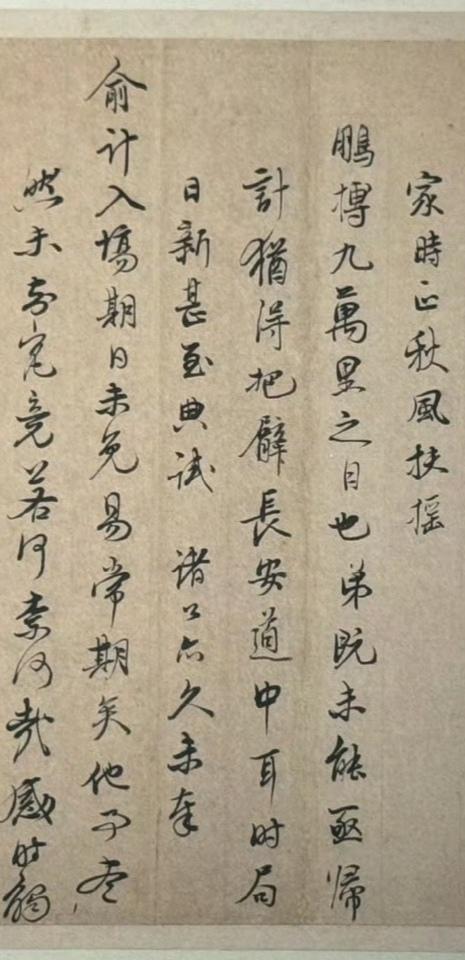 家時正秋風扶搖
鵬摶九萬里之日也弟既未能亟歸
計猶得把臂長安道中耳時局
日新甚至典試 諸公亦久未奉
俞計入場期日未免易常期矣他事盡
然未知究竟若何柰何柰何感時觸